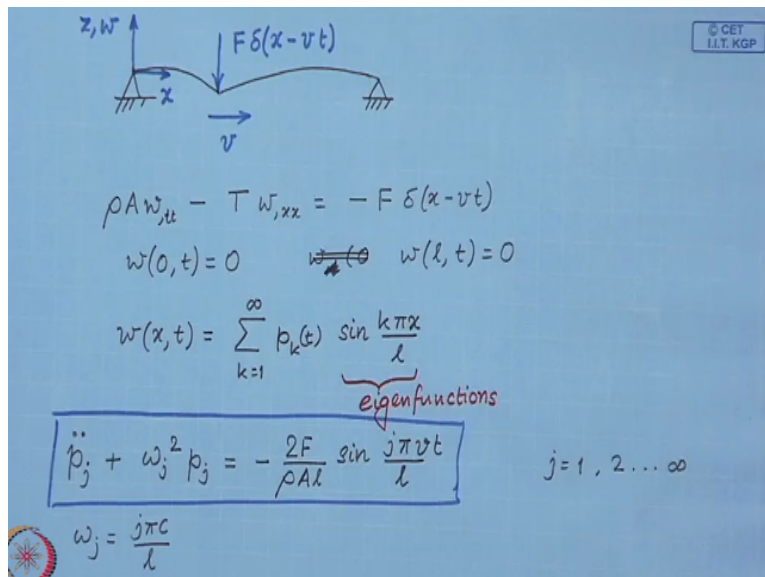 z, w
F δ(x-vt)
© CET
I.I.T. KGP
x
v
ρA w,tt - T w,xx = - F δ(x-vt)
w(0,t) = 0 w(l,t) = 0
w(x,t) = ∑_{k=1}^{∞} p_k(t) sin kπx/l
eigenfunctions
p̈_j + ω_j² p_j = - 2F/ρAl sin jπvt/l j=1, 2 ... ∞
ω_j = jπc/l